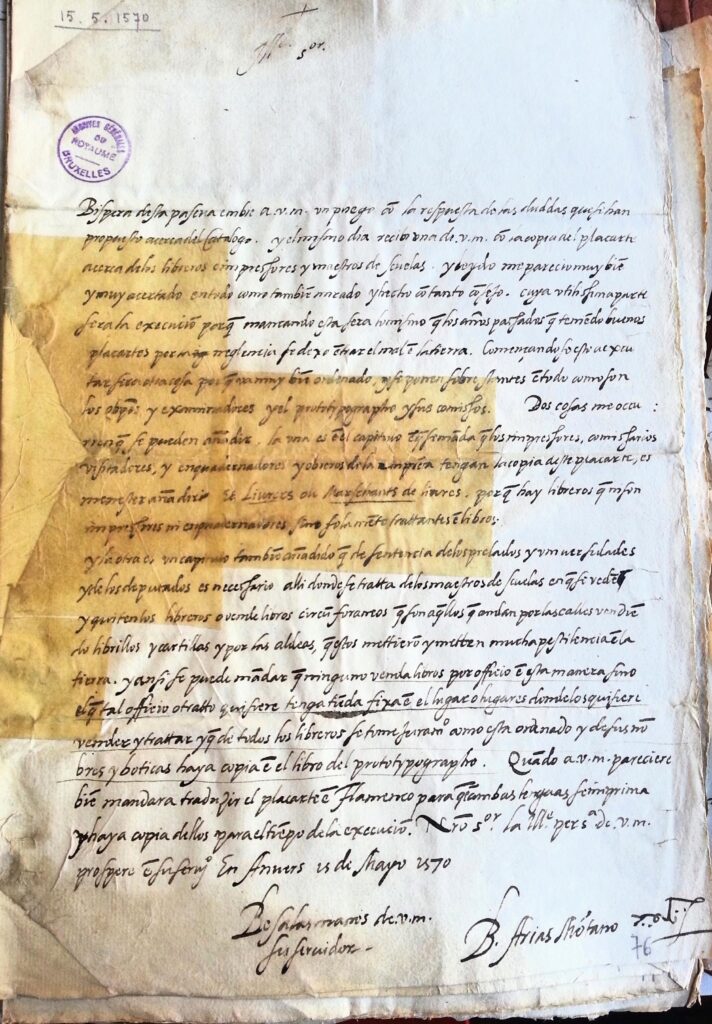 15. 5. 1570
Ille. sor.
ARCHIVES GÉNÉRALES
DU
ROYAUME
BRUXELLES
Bispera desta pascua embie a.v.m. un pliego cõ la respuesta de las duddas que se han
propuesto acerca del Catalogo. y el mismo dia recibi una de.v.m. cõ la copia del placarte
acerca de los libreros impressores y maestros de scuelas. y todo lo me parecio muy biẽ
y muy acertado en todo como tambiẽ mirado y hecho con tanto cõsejo. cuya utilissima parte
sera la execuciõ porq̃ mancando esta sera lo mismo q̃ los años passados q̃ teniẽdo buenos
placartes por neglencia se dexo ẽtrar el mal ẽ la tierra. Començandose esto a execu
tar sera otra cosa por q̃ va muy biẽ ordenado, y se ponen sobre stantes ẽ todo como son
los obpos. y examinadores y el prototypographo y sus comissos. Dos cosas me occu:
rren q̃ se pueden añadir. la una es ẽ el capitulo ẽ q̃ se mãda q̃ los impressores, comissarios
visitadores, y enquadernadores y obreros de la imprẽta tengan la copia deste placarte, es
menester añadir Et Livrers ou Marchants de livres. porq̃ hay libreros q̃ no son
impressores ni enquadernadores sino solamẽte trattantes ẽ libros.
y la otra es un capitulo tambiẽ añadido q̃ de sentencia de los prelados y universidades
y de los deputados es necessario alli donde se tratta de los maestros de scuelas en q̃ se vedẽ
y quiten los libreros o vende libros circũforaneos q̃ son aq̃llos q̃ andan por las calles vendiẽ
do librillos y cartillas y por las aldeas, q̃ estos mettierõ y metten mucha pestilencia ẽ la
tierra. y ansi se puede mãdar q̃ ninguno venda libros por officio ẽ esta manera sino
el q̃ tal officio o tratto quisiere tenga tiẽda fixa ẽ el lugar o lugares donde los quisiere
vender y trattar y q̃ de todos los libreros se tome juramto como esta ordenado y de sus nõ
bres y boticas haya copia ẽ el libro del prototypographo. Quãdo a.v.m. pareciere
biẽ mandara traduzir el placarte ẽ Flamenco para q̃ ẽ ambas lenguas se imprima
y haya copia dellos para el tiẽpo de la execuciõ. Nro. sor. la Ille. persa. de.v.m.
prospere ẽ su serujo. En Anvers 15 de Mayo 1570
Besa las manos de.v.m.
su servidor
B. Arias Mõtano
76